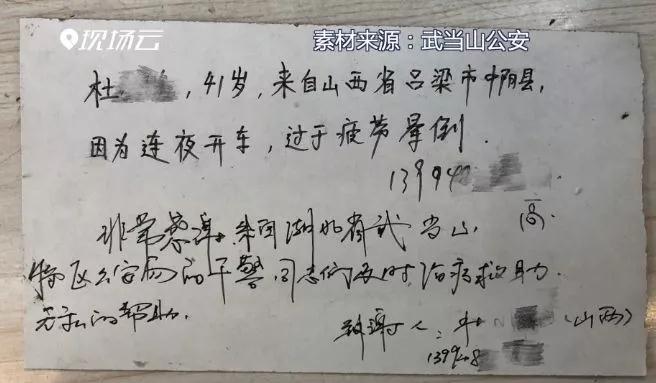 现场云
素材来源：武当山公安
杜 ，41岁，来自山西省吕梁市中阳县，
因为连夜开车，过于疲劳晕倒.
13994
非常感谢 来自湖北省武当山 高
特区公安局的干警同志们及时治病救助.
的帮助.
致谢人： 杜 （山西）
139948